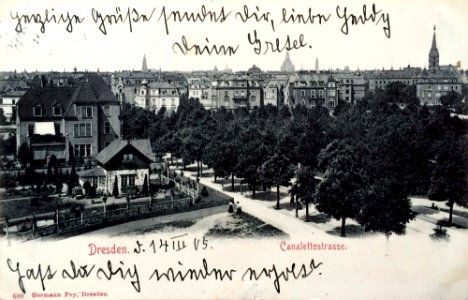 Herzliche Grüße sendet dir, liebe Heddy
Deine Gretel.
Dresden. d. 14 III 05.
Canalettostrasse.
Hast du dich wieder erholt?
690 Hermann Poy, Dresden